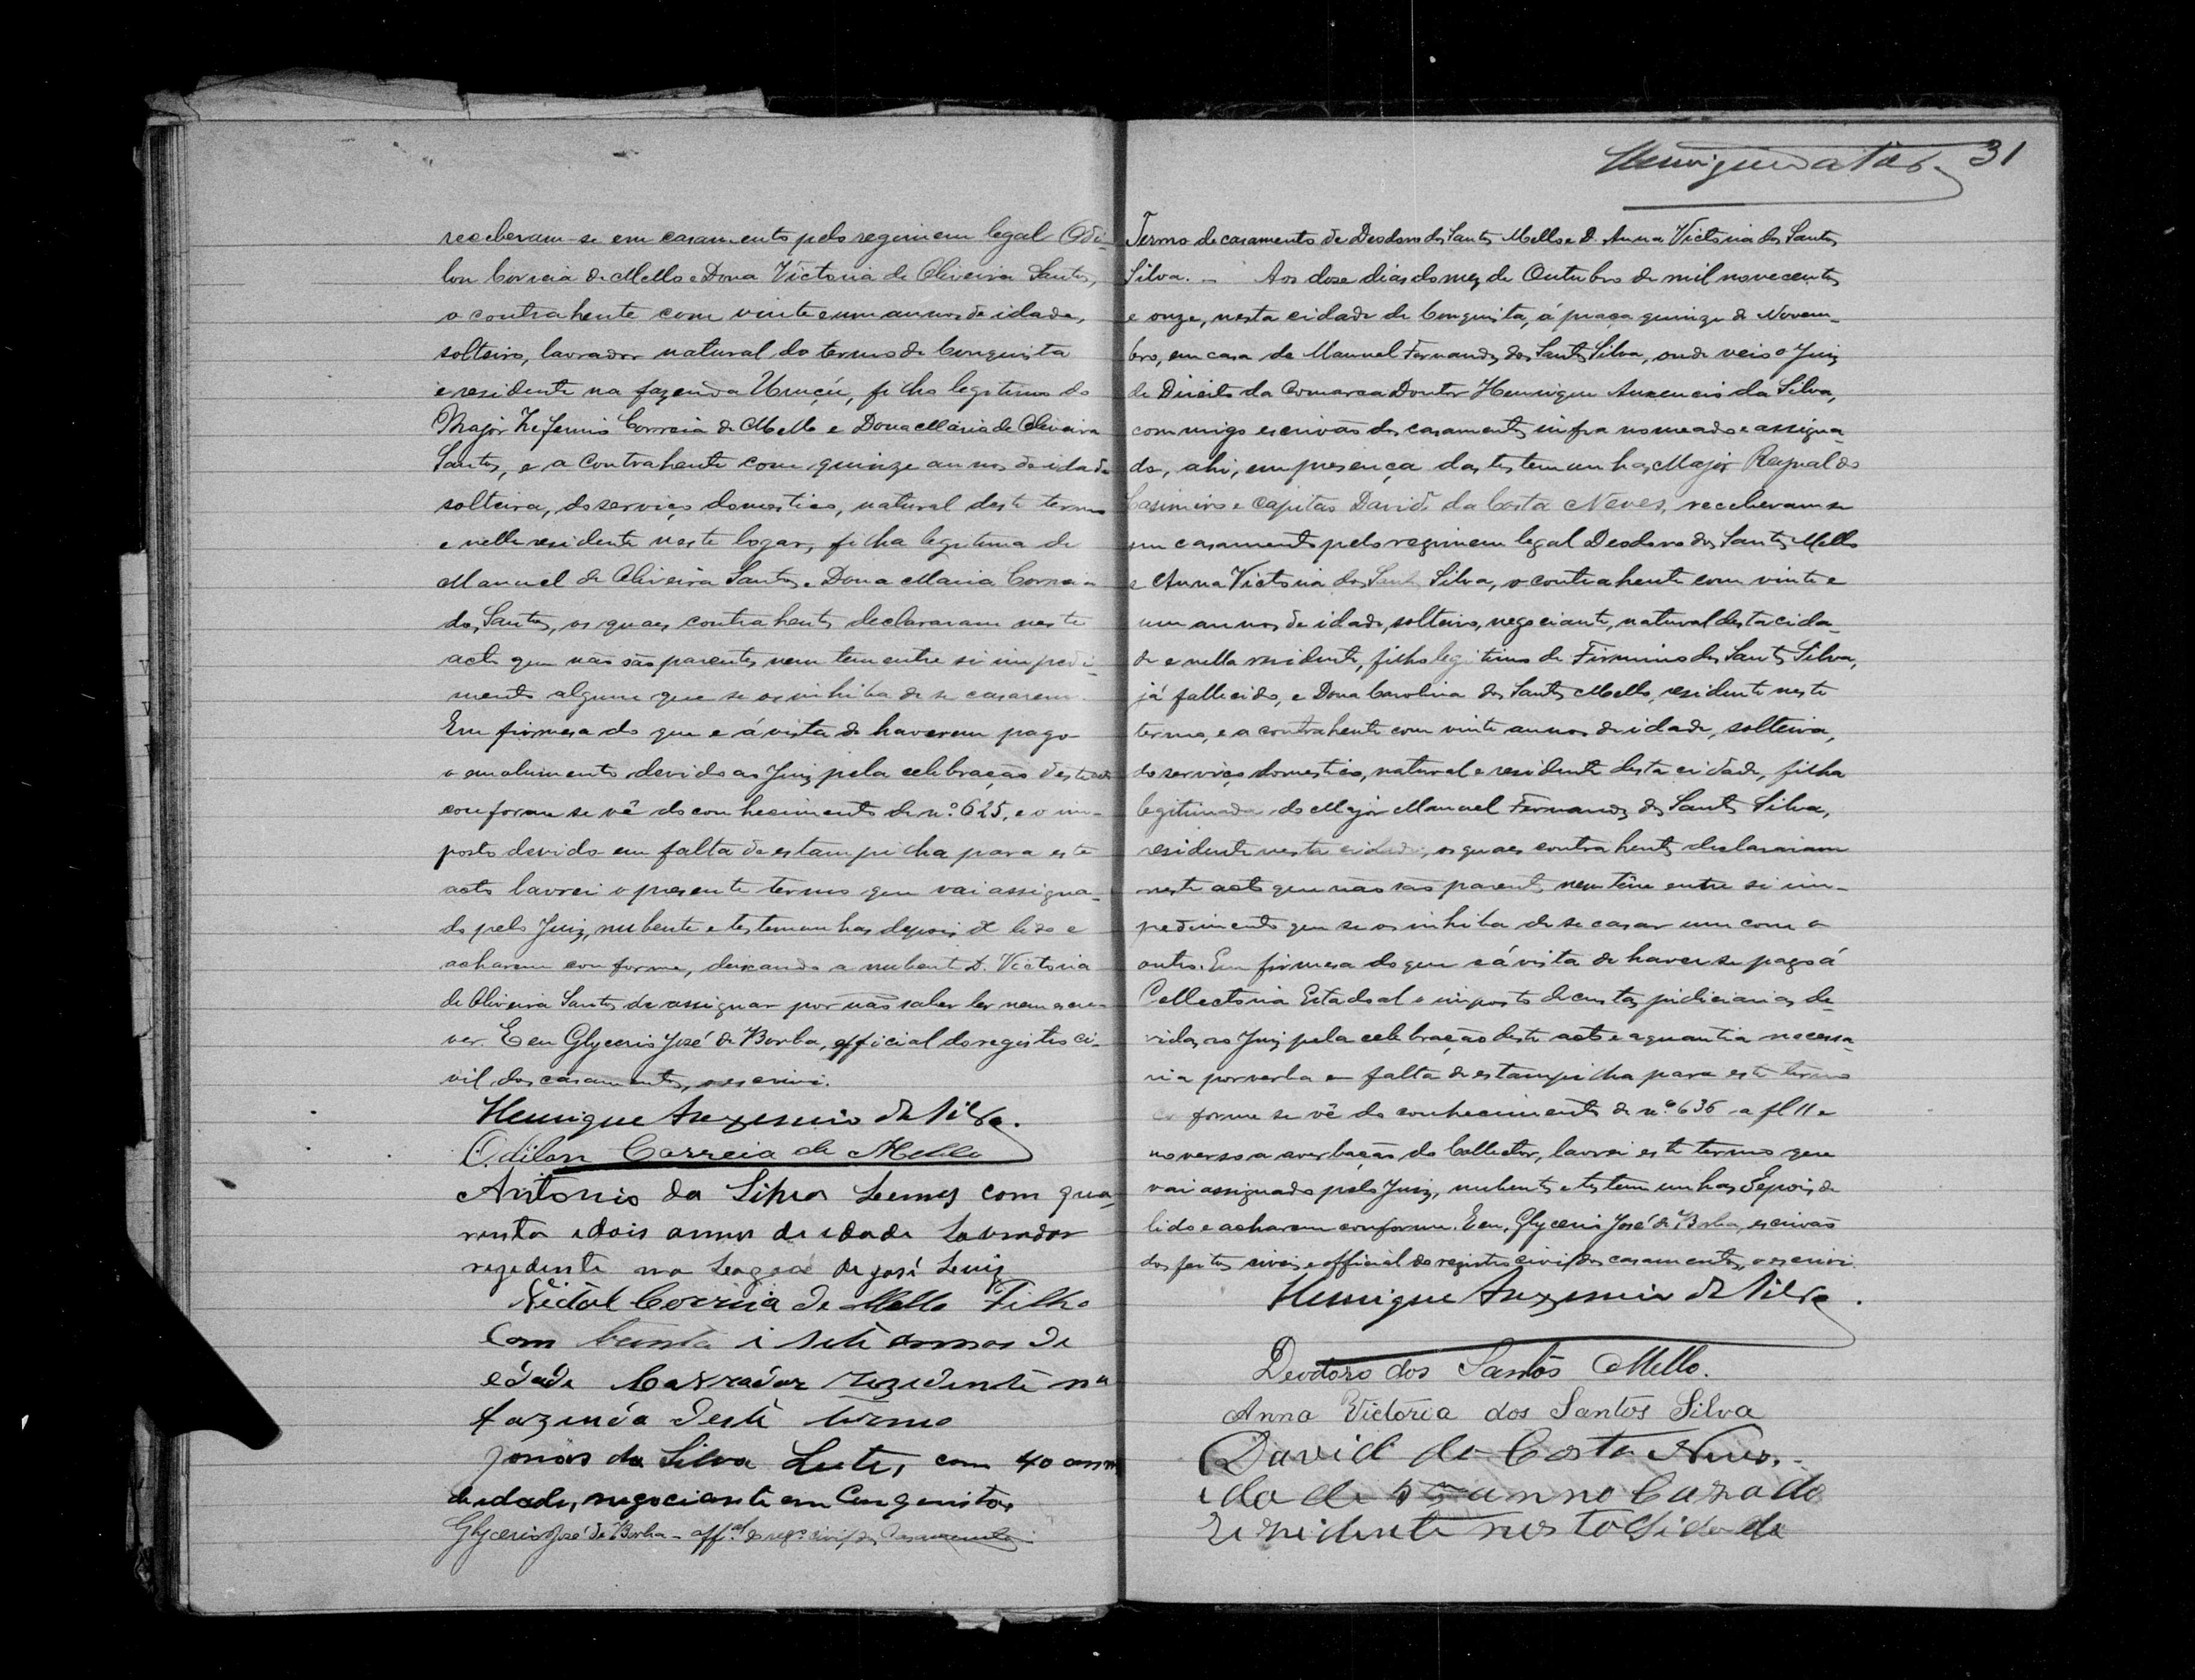 receberam-se em casamento pelo regimem legal Odi-
lon Correia de Mello e Dona Victoria de Oliveira Santos,
o contrahente com vinte e um annos de idade,
solteiro, lavrador natural do termo de Conquista
e residente na fazenda Uruçú, filho legitimo do
Major Zeferino Correia de Mello e Dona Maria de Oliveira
Santos, e a contrahente com quinze annos de idade
solteira, do serviço domestico, natural deste termo
e nelle residente neste logar, filha legitima de
Manuel de Oliveira Santos e Dona Maria Correia
dos Santos, os quaes contrahentes declararam neste
acto que não são parentes nem tem entre si impedi-
mento algum que se os inhiba de se casarem.
Em firmesa do que e á vista de haverem pago
o emolumento devido ao Juiz pela celebração deste acto
conforme se vê do conhecimento de nº 625, e o im-
posto devido em falta de estampilha para este
acto lavrei o presente termo que vai assigna-
do pelo Juiz, nubente e testemunhas depois de lido e
acharem conforme, deixando a nubente D. Victoria
de Oliveira Santos de assignar por não saber ler nem escre-
ver. E eu Glycerio José de Borba, official do registro ci-
vil dos casamentos, o escrivi.
Henrique Auxencio da Silva.
Odilon Correia de Mello
Antonio da Silva Lemos com qua-
renta e dois annos de edade Lavrador
rezedente na Lagoa de José Luiz
Correia de Mello Filho
Com trinta i seti annos de
edade Lavrador rezidente na
fazenda deste termo
Jonas da Silva Leite, com 40 annos
de edade, negociante em Conquista
Glycerio José de Borba - offal do rego civil dos Casamentos
31
Termo de casamento de Deodoro dos Santos Mello e D. Anna Victoria dos Santos
Silva. - Aos dose dias do mez de Outubro de mil novecentos
e onze, nesta cidade de Conquista, á praça quinze de Novem-
bro, em casa de Manuel Fernandes dos Santos Silva, onde veio o Juiz
de Direito da Comarca Doutor Henrique Auxencio da Silva,
commigo escrivão dos casamentos infra nomeado e assigna-
do, ahi, em presença das testemunhas Major Reginaldo
Casimiro e Capitão David da Costa Neves, receberam-se
em casamento pelo regimem legal Deodoro dos Santos Mello
e Anna Victoria dos Santos Silva, o contrahente com vinte e
um annos de idade, solteiro, negociante, natural desta cida-
de e nella residente, filho legitimo de Firmino dos Santos Silva,
já fallecido, e Dona Carolina dos Santos Mello, residente neste
termo, e a contrahente com vinte annos de idade, solteira,
do serviço domestico, natural e residente desta cidade, filha
legitimada do Major Manuel Fernandes dos Santos Silva,
residente nesta cidade, os quaes contrahentes declararam
neste acto que não são parentes nem têm entre si im-
pedimento que se os inhiba de se casar um com o
outro. Em firmesa do que e á vista de haver-se pago á
Collectoria Estadoal o imposto de custas judiciarias de-
vidas ao Juiz pela celebração deste acto e a quantia necessa-
ria por verba em falta de estampilha para este termo
conforme se vê do conhecimento de nº 636 a fl 11 e
no verso a averbação do Collector, lavrei este termo que
vai assignado pelo Juiz, nubentes e testemunhas depois de
lido e acharem conforme. E eu, Glycerio José de Borba, escrivão
dos feitos civeis e official do registro civil dos casamentos, o escrivi.
Henrique Auxencio da Silva.
Deodoro dos Santos Mello.
Anna Victoria dos Santos Silva
David da Costa Neves.
idade annos Cazado
rezidente nesta Sidade